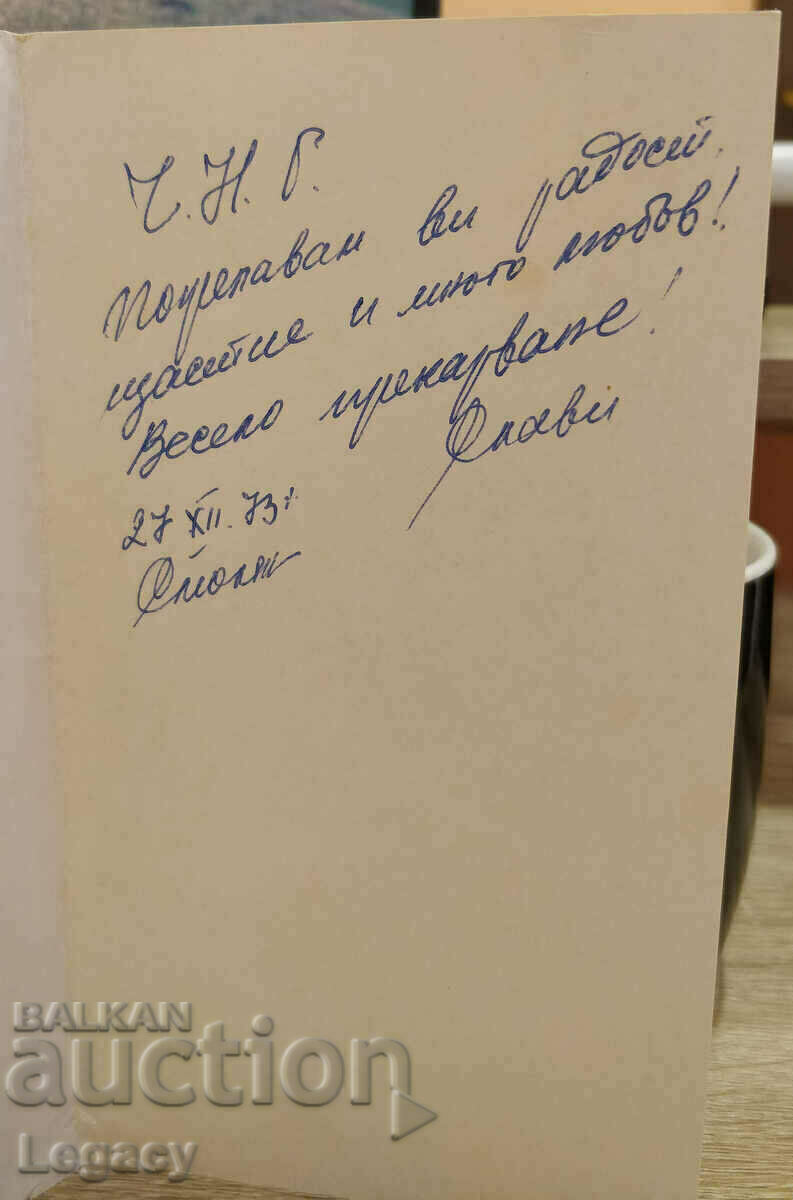 Ч.Н.Г.
Пожелавам ви радост,
щастие и много любов!
Весело прекарване!
Слави
27 XII. 73 г.
Смолян
BALKAN
auction
Legacy